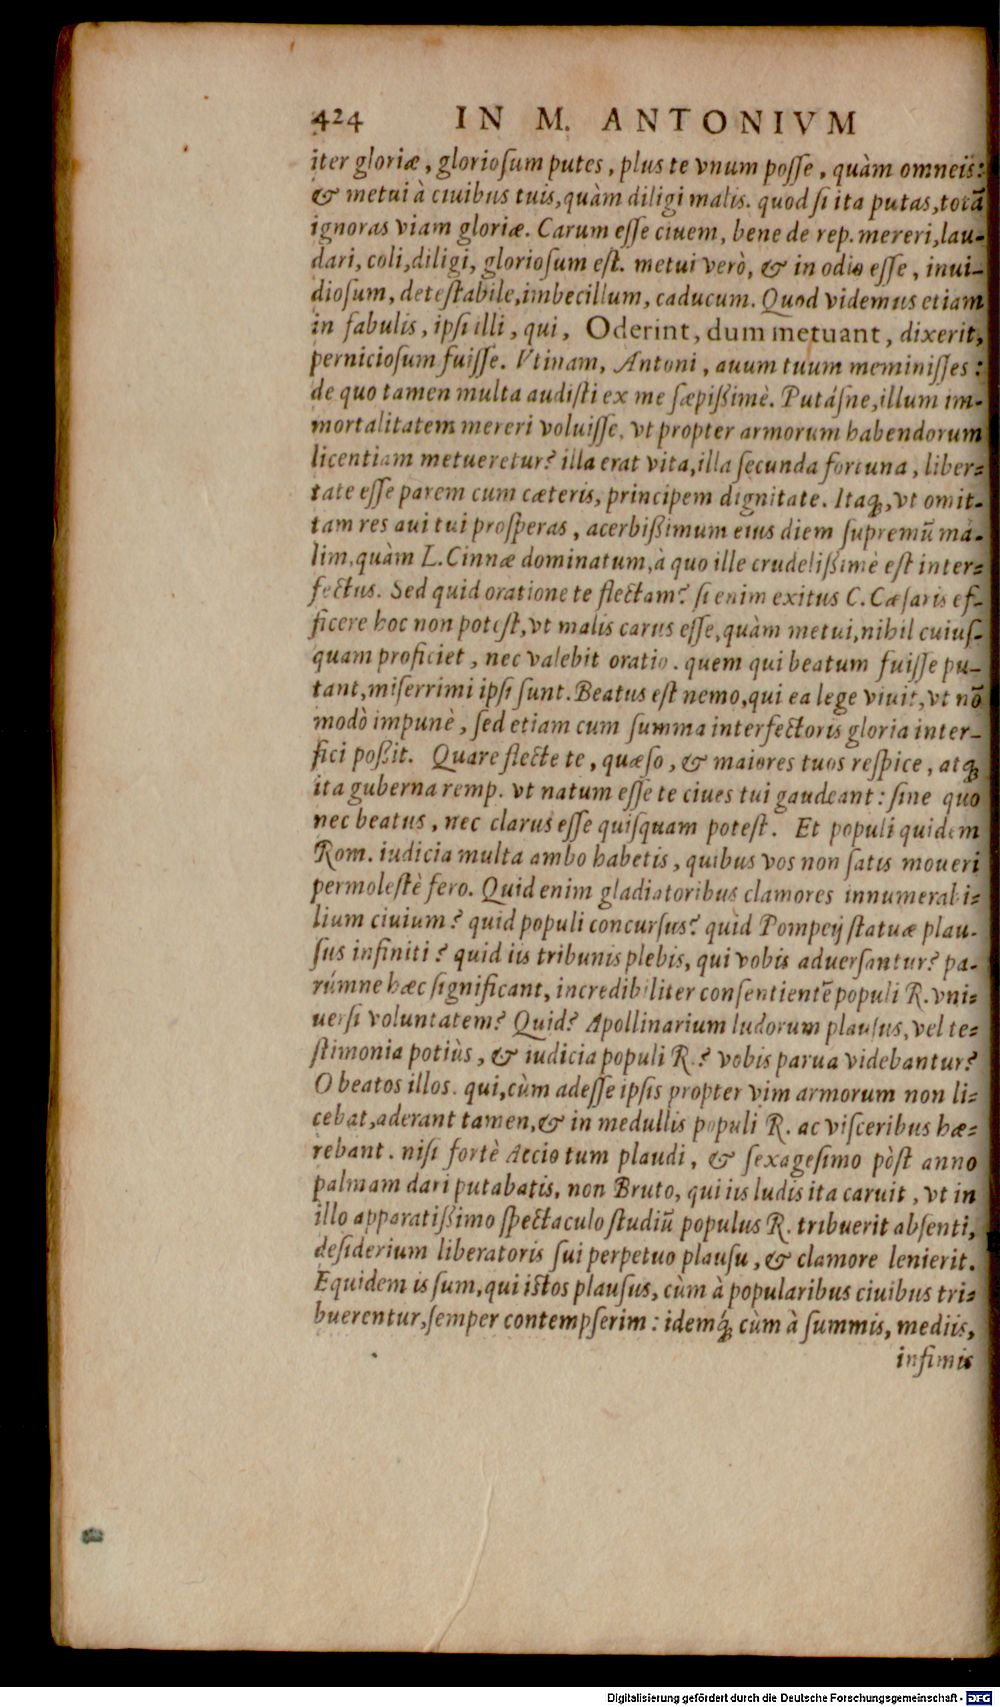 424 IN M. ANTONIVM
iter gloriæ, glorioſum putes, plus te vnum poſſe, quàm omneis:
& metui à ciuibus tuis, quàm diligi malis. quod ſi ita putas, totā
ignoras viam gloriæ. Carum eſſe ciuem, bene de rep. mereri, lau-
dari, coli, diligi, glorioſum eſt. metui verò, & in odio eſſe, inui-
dioſum, deteſtabile, imbecillum, caducum. Quod videmus etiam
in fabulis, ipſi illi, qui, Oderint, dum metuant, dixerit,
pernicioſum fuiſſe. Vtinam, Antoni, auum tuum meminiſſes:
de quo tamen multa audiſti ex me ſæpißimè. Putáſne, illum im-
mortalitatem mereri voluiſſe, vt propter armorum habendorum
licentiam metueretur? illa erat vita, illa ſecunda fortuna, liber-
tate eſſe parem cum cæteris, principem dignitate. Itaq;, vt omit-
tam res aui tui proſperas, acerbißimum eius diem ſupremū má-
lim, quàm L. Cinnæ dominatum, à quo ille crudelißimè eſt inter-
fectus. Sed quid oratione te flectam? ſi enim exitus C. Cæſaris ef-
ficere hoc non poteſt, vt malis carus eſſe, quàm metui, nihil cuiuſ-
quam proficiet, nec valebit oratio. quem qui beatum fuiſſe pu-
tant, miſerrimi ipſi ſunt. Beatus eſt nemo, qui ea lege viuit, vt nō
modò impunè, ſed etiam cum ſumma interfectoris gloria inter-
fici poßit. Quare flecte te, quæſo, & maiores tuos reſpice, atq;
ita guberna remp. vt natum eſſe te ciues tui gaudeant: ſine quo
nec beatus, nec clarus eſſe quiſquam poteſt. Et populi quidem
Rom. iudicia multa ambo habetis, quibus vos non ſatis moueri
permoleſtè fero. Quid enim gladiatoribus clamores innumerabi-
lium ciuium? quid populi concurſus? quid Pompeij ſtatuæ plau-
ſus infiniti? quid iis tribunis plebis, qui vobis aduerſantur? pa-
rúmne hæc ſignificant, incredibiliter conſentientē populi R. vni-
uerſi voluntatem? Quid? Apollinarium ludorum plauſus, vel te-
ſtimonia potiùs, & iudicia populi R.? vobis parua videbantur?
O beatos illos. qui, cùm adeſſe ipſis propter vim armorum non li-
cebat, aderant tamen, & in medullis populi R. ac viſceribus hæ-
rebant. niſi fortè Accio tum plaudi, & ſexageſimo pòſt anno
palmam dari putabatis, non Bruto, qui iis ludis ita caruit, vt in
illo apparatißimo ſpectaculo ſtudiū populus R. tribuerit abſenti,
deſiderium liberatoris ſui perpetuo plauſu, & clamore lenierit.
Equidem is ſum, qui iſtos plauſus, cùm à popularibus ciuibus tri-
buerentur, ſemper contempſerim: idemq́; cùm à ſummis, mediis,
infimis
Digitalisierung gefördert durch die Deutsche Forschungsgemeinschaft - DFG